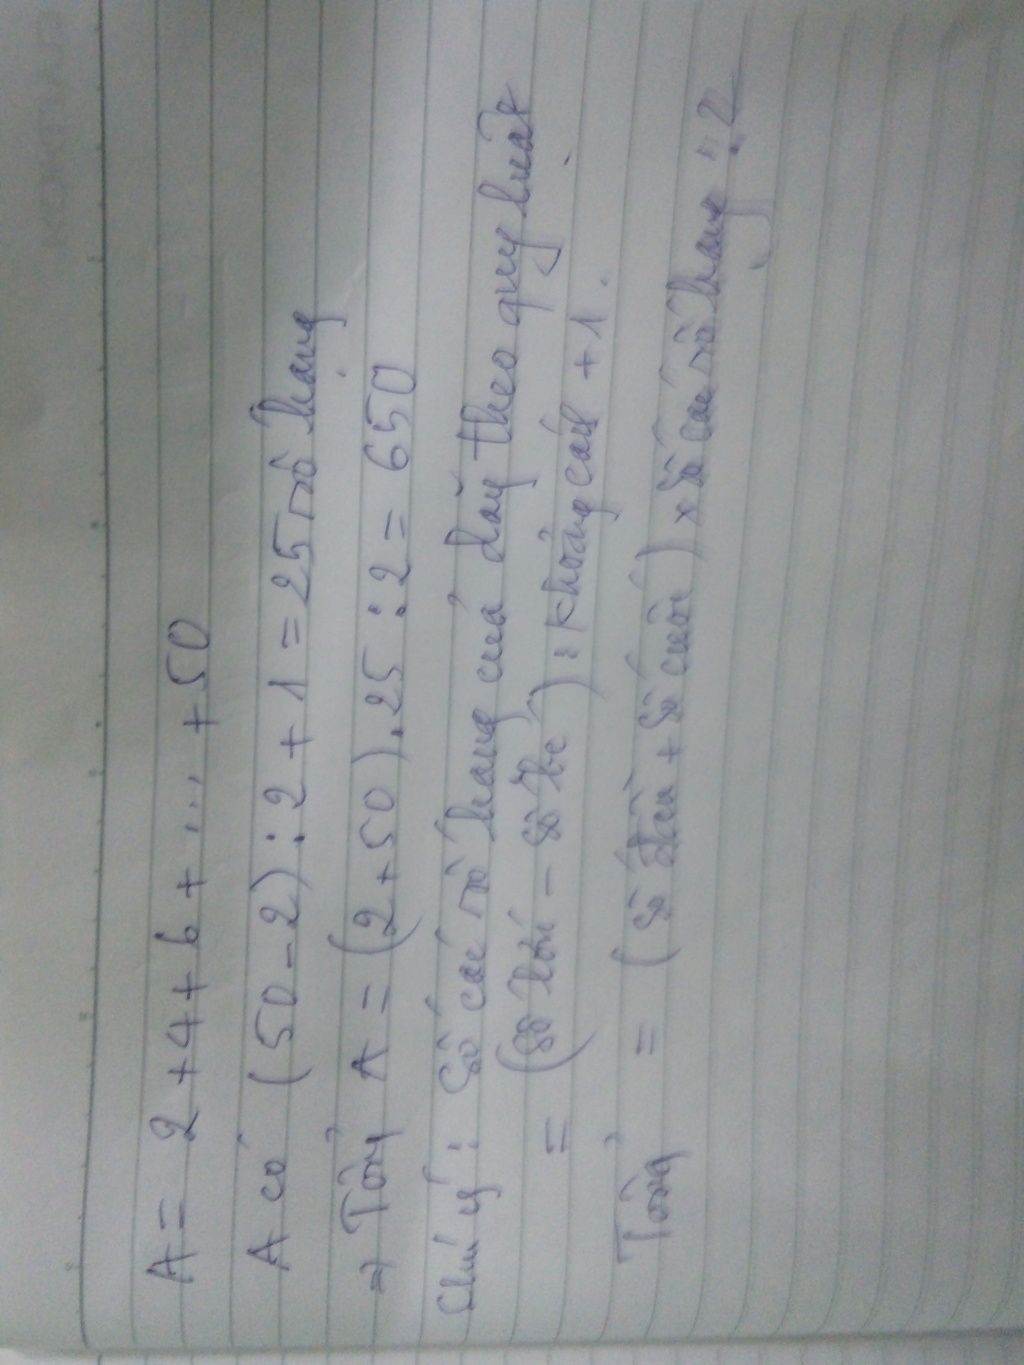 A = 2 + 4 + 6 + ... + 50
A có (50 - 2) : 2 + 1 = 25 số hạng
⇒ Tổng A = (2 + 50) . 25 : 2 = 650
Chú ý : Số các số hạng của dãy theo quy luật
= (số lớn - số bé) : khoảng cách + 1.
Tổng = (số đầu + số cuối) x số các số hạng : 2